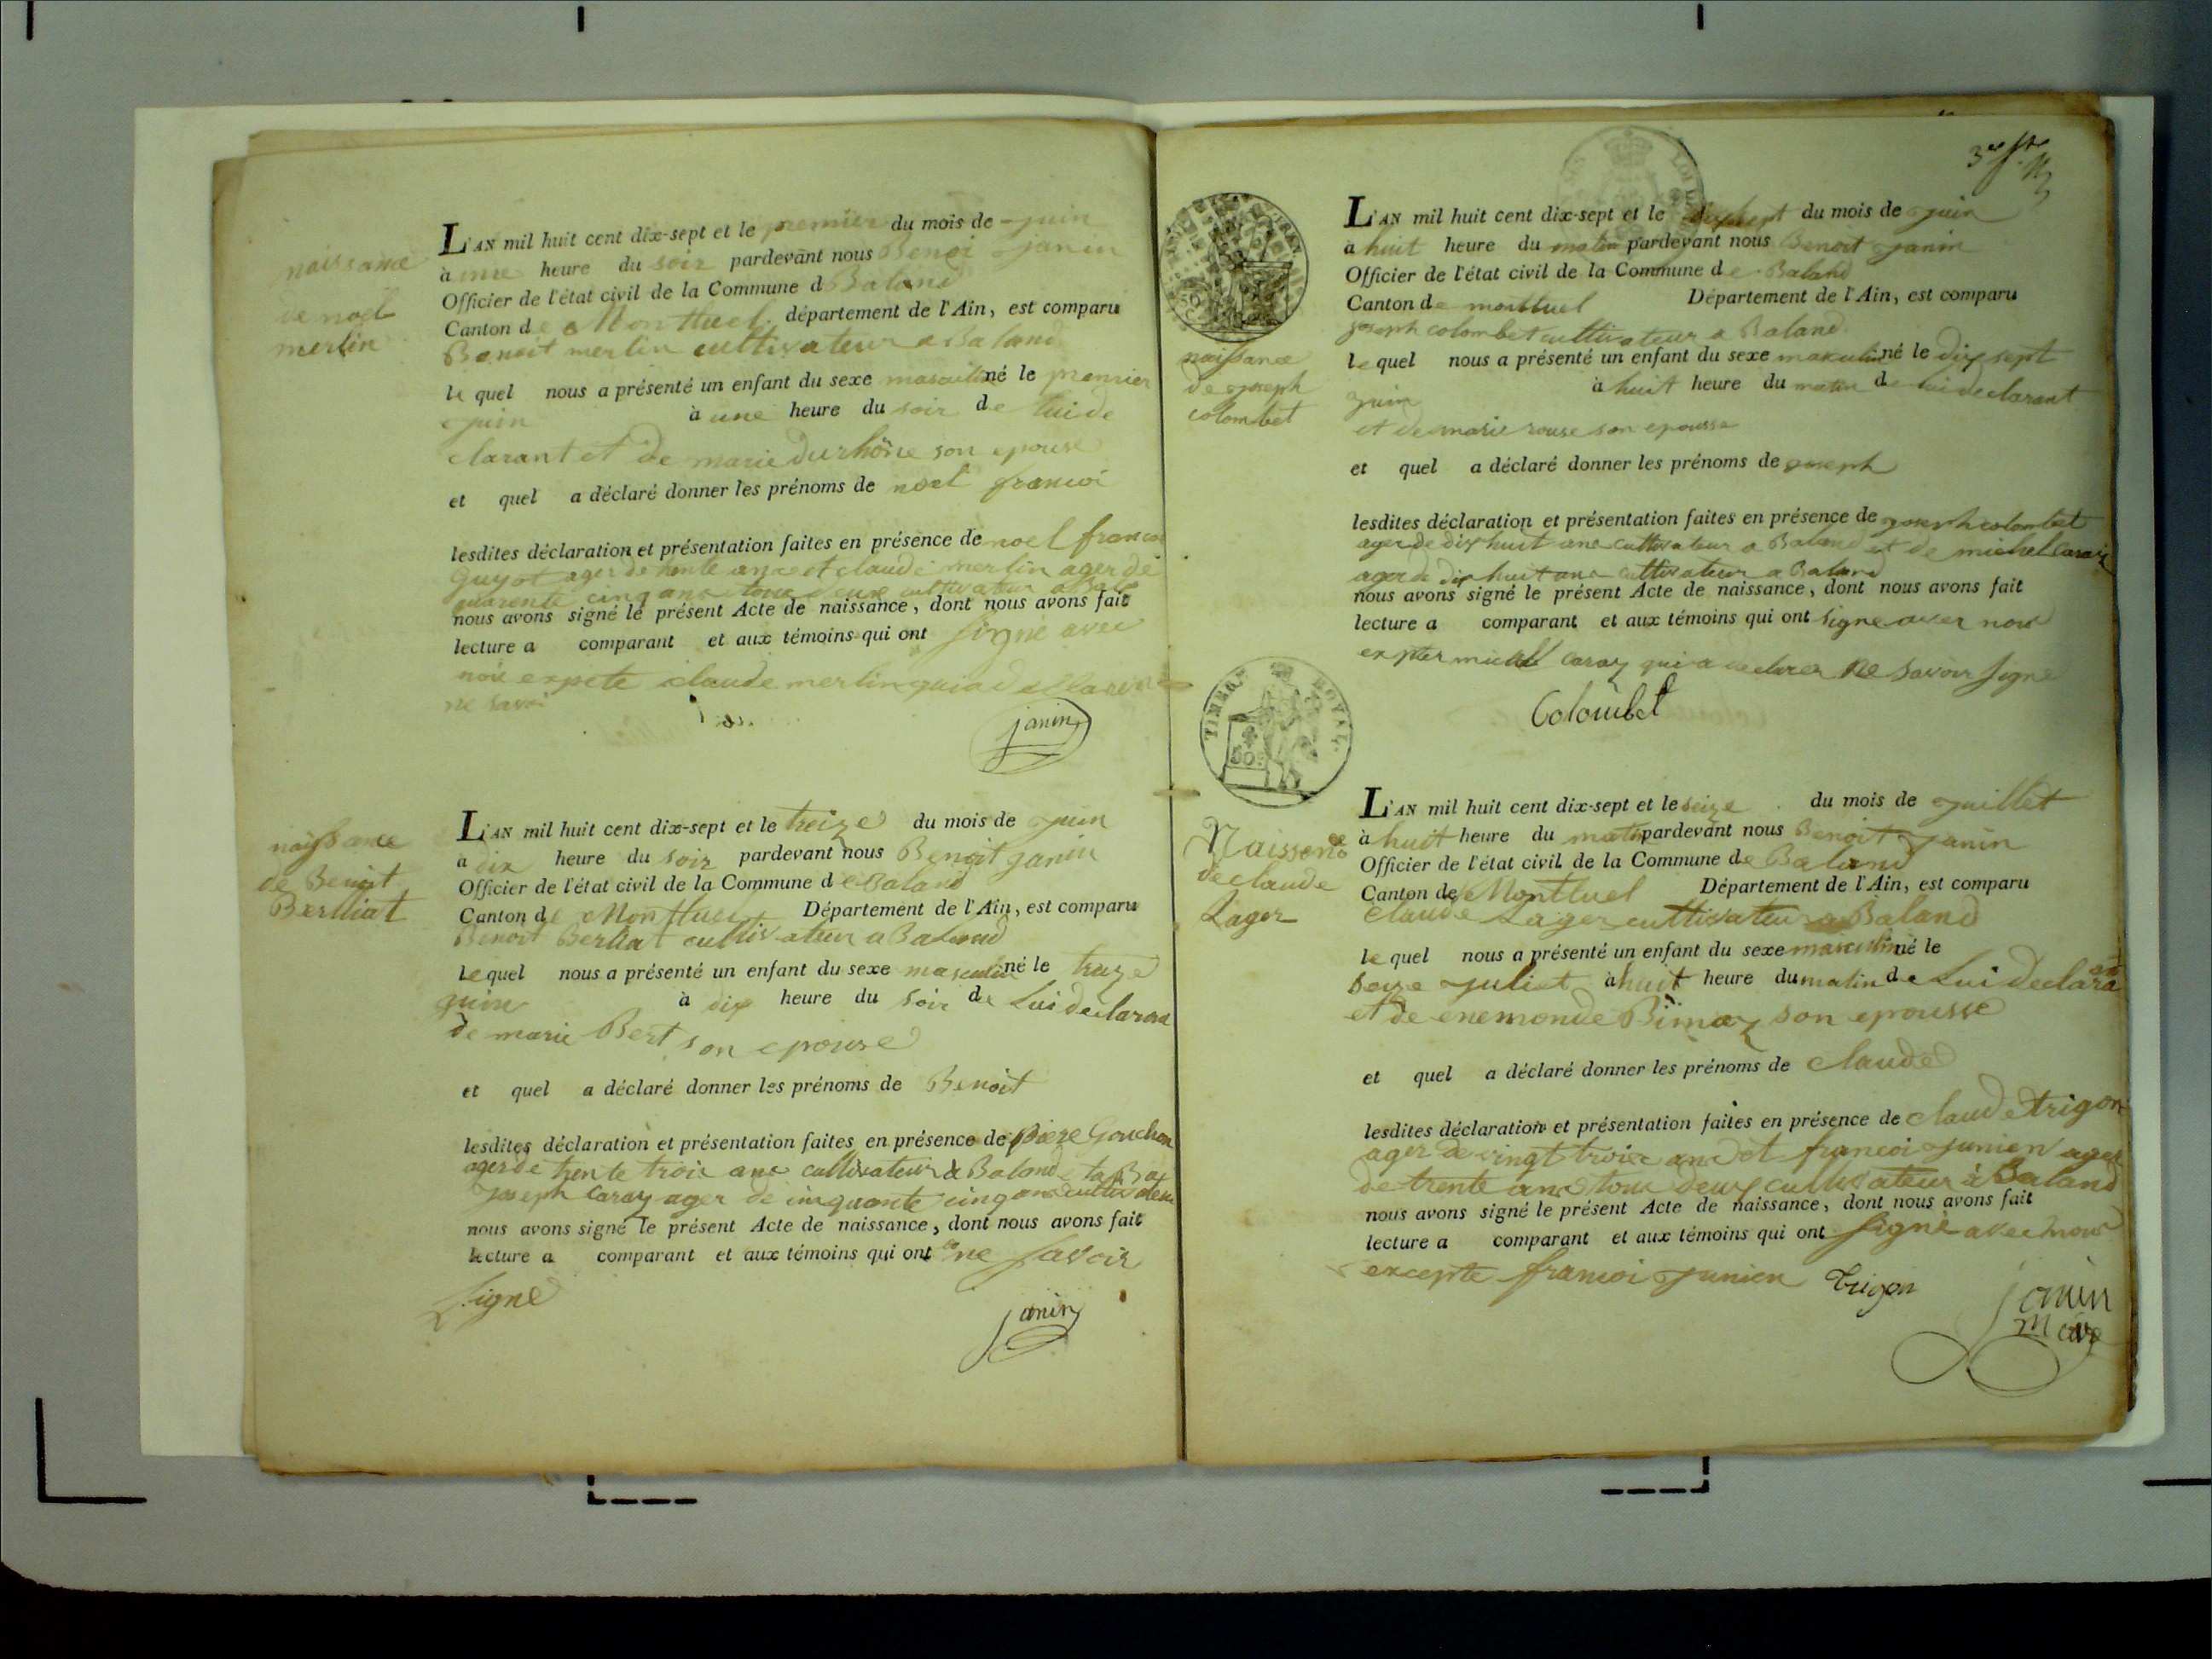 naissance
de noël
merlin
L'AN mil huit cent dix-sept et le premier du mois de juin
à une heure du soir pardevant nous Benoi janin
Officier de l'état civil de la Commune d Baland
Canton de Montluel département de l'Ain, est comparu
Benoit merlin cultivateur a Baland
le quel nous a présenté un enfant du sexe masculin né le premier
juin à une heure du soir de lui de
clarant et de marie durhône son epouse
et quel a déclaré donner les prénoms de noel francoi
lesdites déclaration et présentation faites en présence de noel francoi
Guyot ager de trente ans et claude merlin ager de
quarente cinq ans tous deux cultivateur a Bala
nous avons signé le présent Acte de naissance, dont nous avons fait
lecture a comparant et aux témoins qui ont signé avec
nou expete claude merlin qui a
ne savoi
janin
nayssance
de Benoit
Berlliat
L'AN mil huit cent dix-sept et le treize du mois de juin
à dix heure du soir pardevant nous Benoit janin
Officier de l'état civil de la Commune de Baland
Canton de Montluel Département de l'Ain, est comparu
Benoit Berliat cultivateur a Baland
le quel nous a présenté un enfant du sexe masculin né le treize
juin à dix heure du soir de Lui declaran
de marie Bert son epouse
et quel a déclaré donner les prénoms de Benoit
lesdites déclaration et présentation faites en présence de piere Gouchon
ager de trente troi ans cultivateur a Baland
joseph Caray ager de cinquante cinq ans cultivateur
nous avons signé le présent Acte de naissance, dont nous avons fait
lecture a comparant et aux témoins qui ont ne savoir
signé
janin
naissance
de joseph
colombet
L'AN mil huit cent dix-sept et le dixsept du mois de juin
à huit heure du matin pardevant nous Benoit janin
Officier de l'état civil de la Commune de Baland
Canton de montluel Département de l'Ain, est comparu
joseph colombet cultivateur a Baland
le quel nous a présenté un enfant du sexe masculin né le dix sept
juin à huit heure du matin de lui declarant
et de marie rouse son epousse
et quel a déclaré donner les prénoms de joseph
lesdites déclaration et présentation faites en présence de joseph colombet
ager de dix huit ans cultivateur a Baland et de michel caray
ager de dix huit ans cultivateur a Baland
nous avons signé le présent Acte de naissance, dont nous avons fait
lecture a comparant et aux témoins qui ont signe avec nous
expter michel caray qui a declarer ne savoir signe
Colombet
TIMBRE ROYAL
50
Naissence
de claude
Lager
L'AN mil huit cent dix-sept et le seize du mois de juillet
à huit heure du matin pardevant nous Benoit janin
Officier de l'état civil de la Commune de Baland
Canton de Montluel Département de l'Ain, est comparu
claude Lager cultivateur a Baland
le quel nous a présenté un enfant du sexe masculin né le
seize juliet à huit heure du matin de Lui declarant
et de enemonde Bimaz son epousse
et quel a déclaré donner les prénoms de claude
lesdites déclaration et présentation faites en présence de claude trigon
ager de vingt troi ans et francoi junien ager
de trente ans tous deux cultivateur à Baland
nous avons signé le présent Acte de naissance, dont nous avons fait
lecture a comparant et aux témoins qui ont signé avec nous
excepte francoi junien Trigon
janin
maire